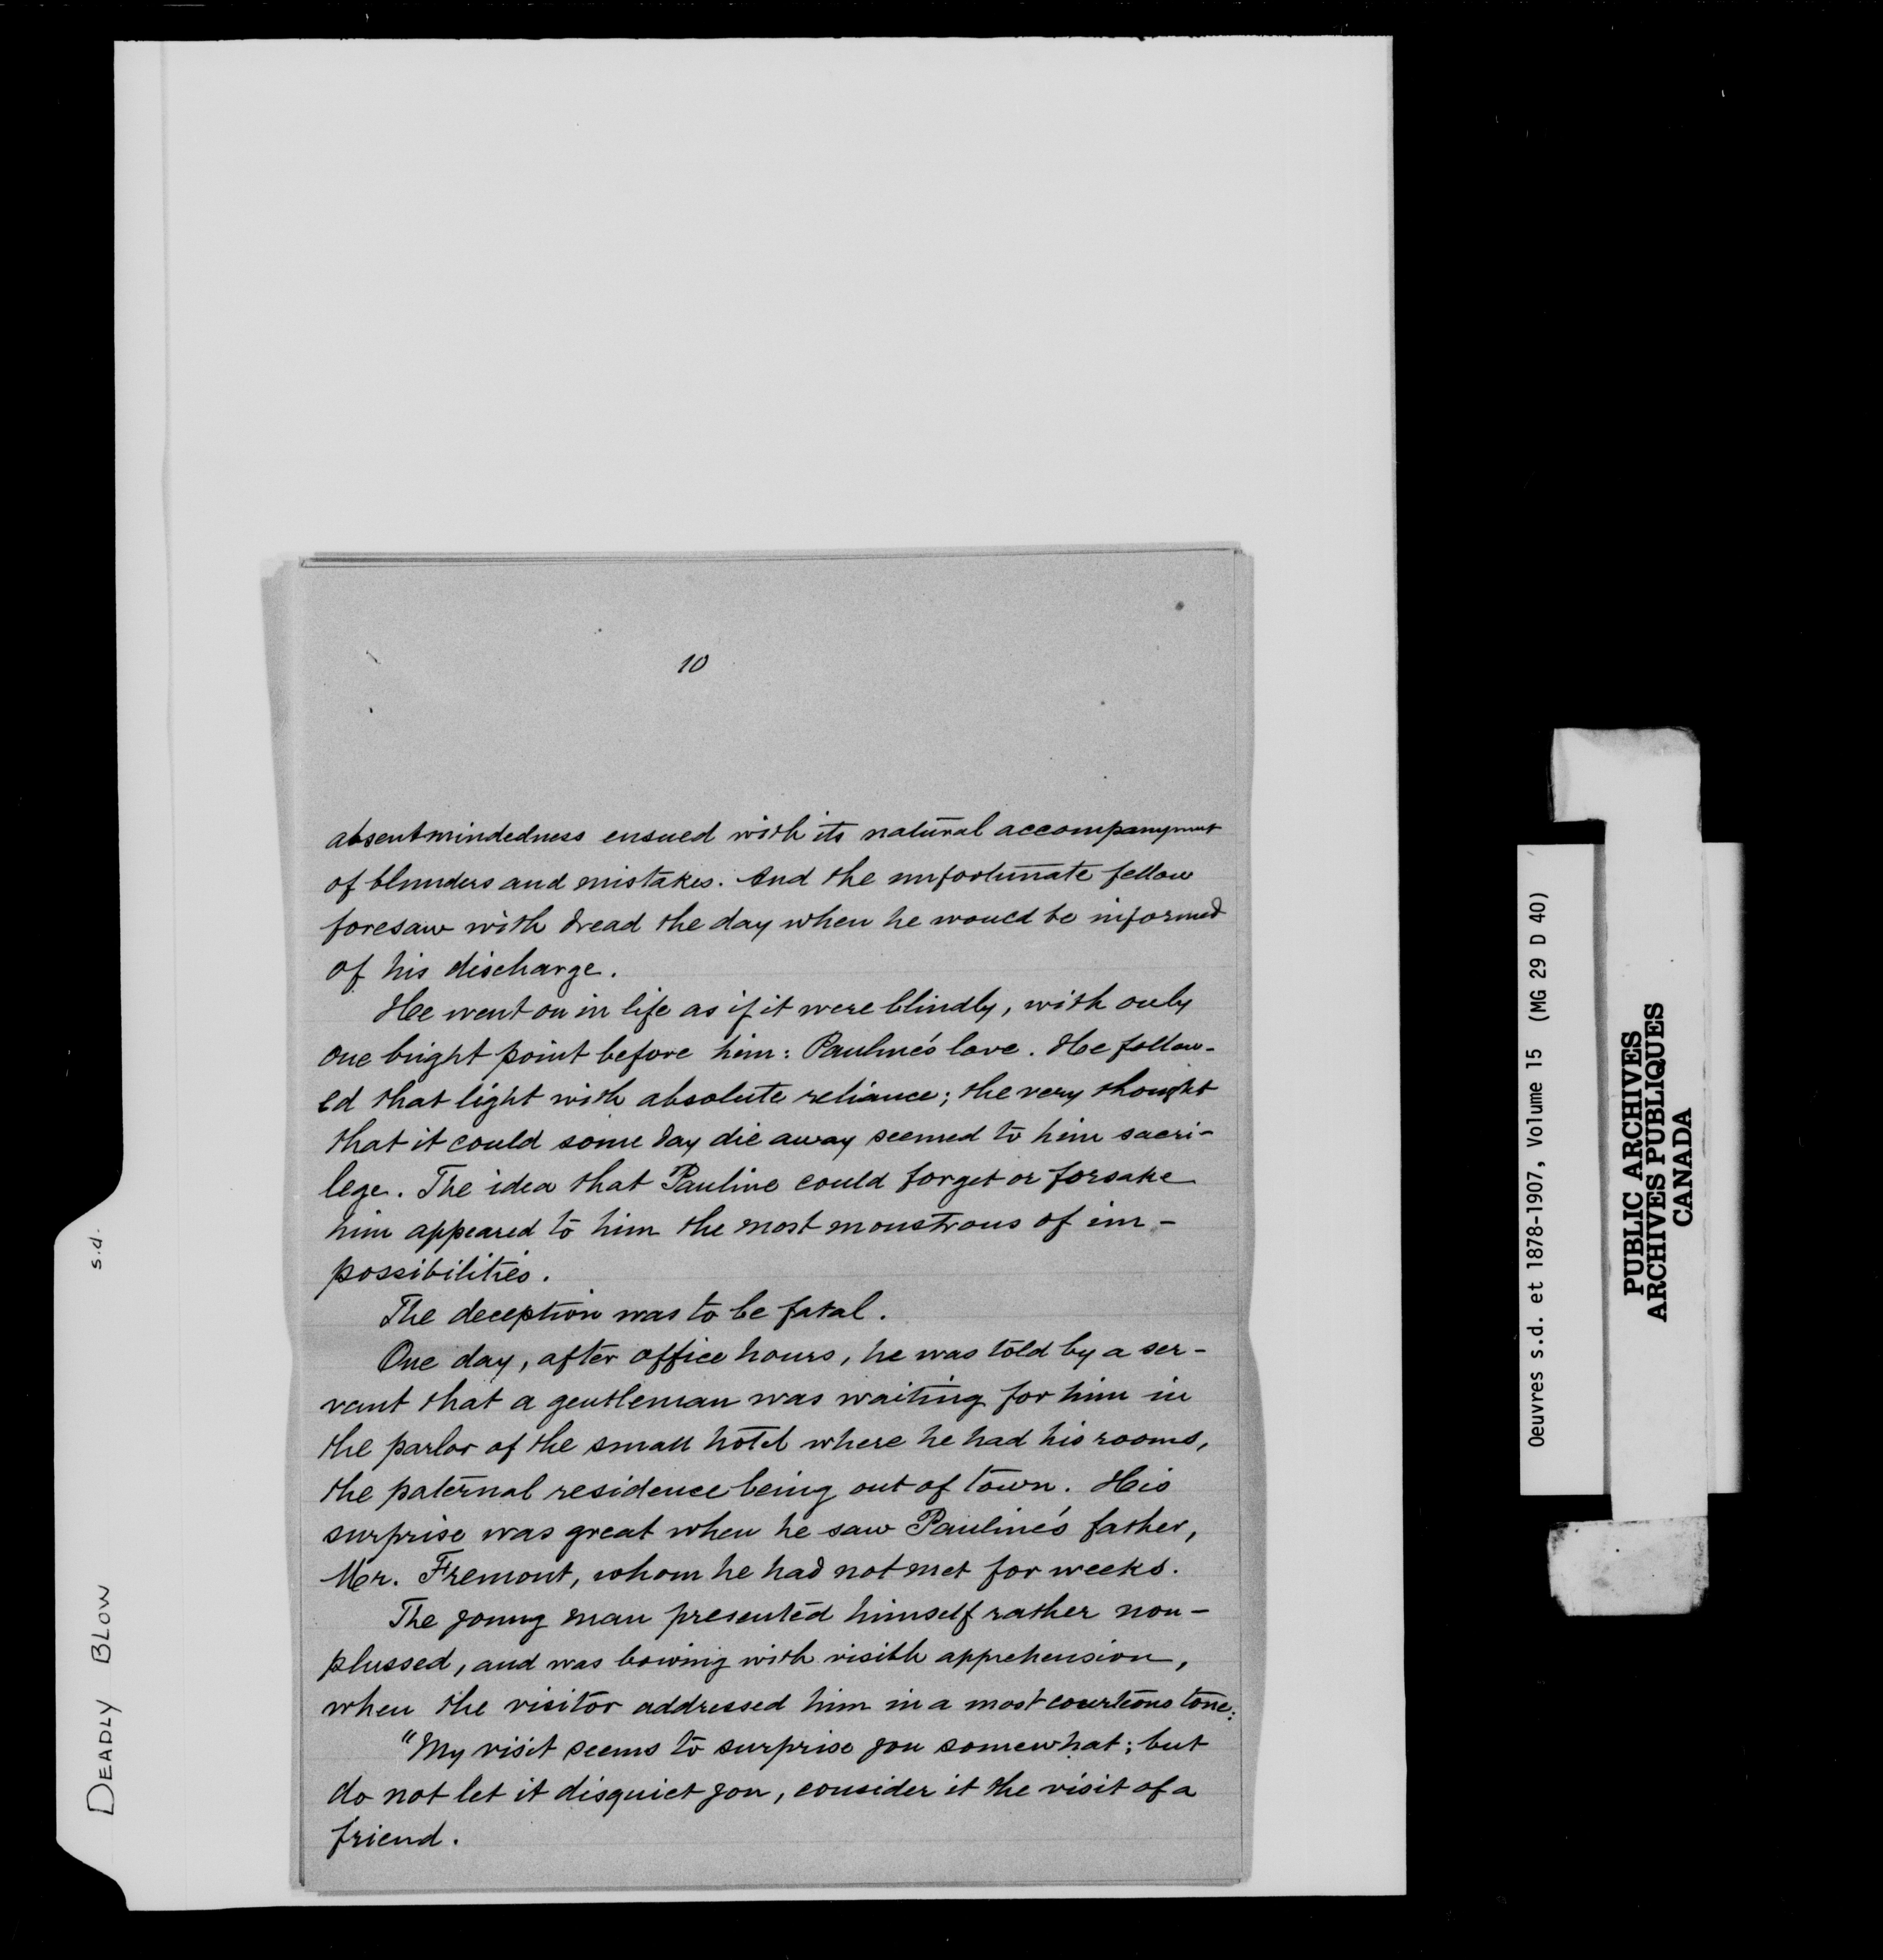 10
absentmindedness ensued with its natural accompanyment
of blunders and mistakes. And the unfortunate fellow
foresaw with dread the day when he would be informed
of his discharge.
He went on in life as if it were blindly, with only
one bright point before him: Pauline's love. He follow-
ed that light with absolute reliance; the very thought
that it could some day die away seemed to him sacri-
lege. The idea that Pauline could forget or forsake
him appeared to him the most monstrous of im-
possibilities.
The deception was to be fatal.
One day, after office hours, he was told by a ser-
vant that a gentleman was waiting for him in
the parlor of the small hotel where he had his rooms,
the paternal residence being out of town. His
surprise was great when he saw Pauline's father,
Mr. Fremont, whom he had not met for weeks.
The young man presented himself rather non-
plussed, and was bowing with visible apprehension,
when the visitor addressed him in a most courteous tone:
"My visit seems to surprise you somewhat; but
do not let it disquiet you, consider it the visit of a
friend.
DEADLY BLOW s.d.
Oeuvres s.d. et 1878-1907, Volume 15 (MG 29 D 40)
PUBLIC ARCHIVES
ARCHIVES PUBLIQUES
CANADA